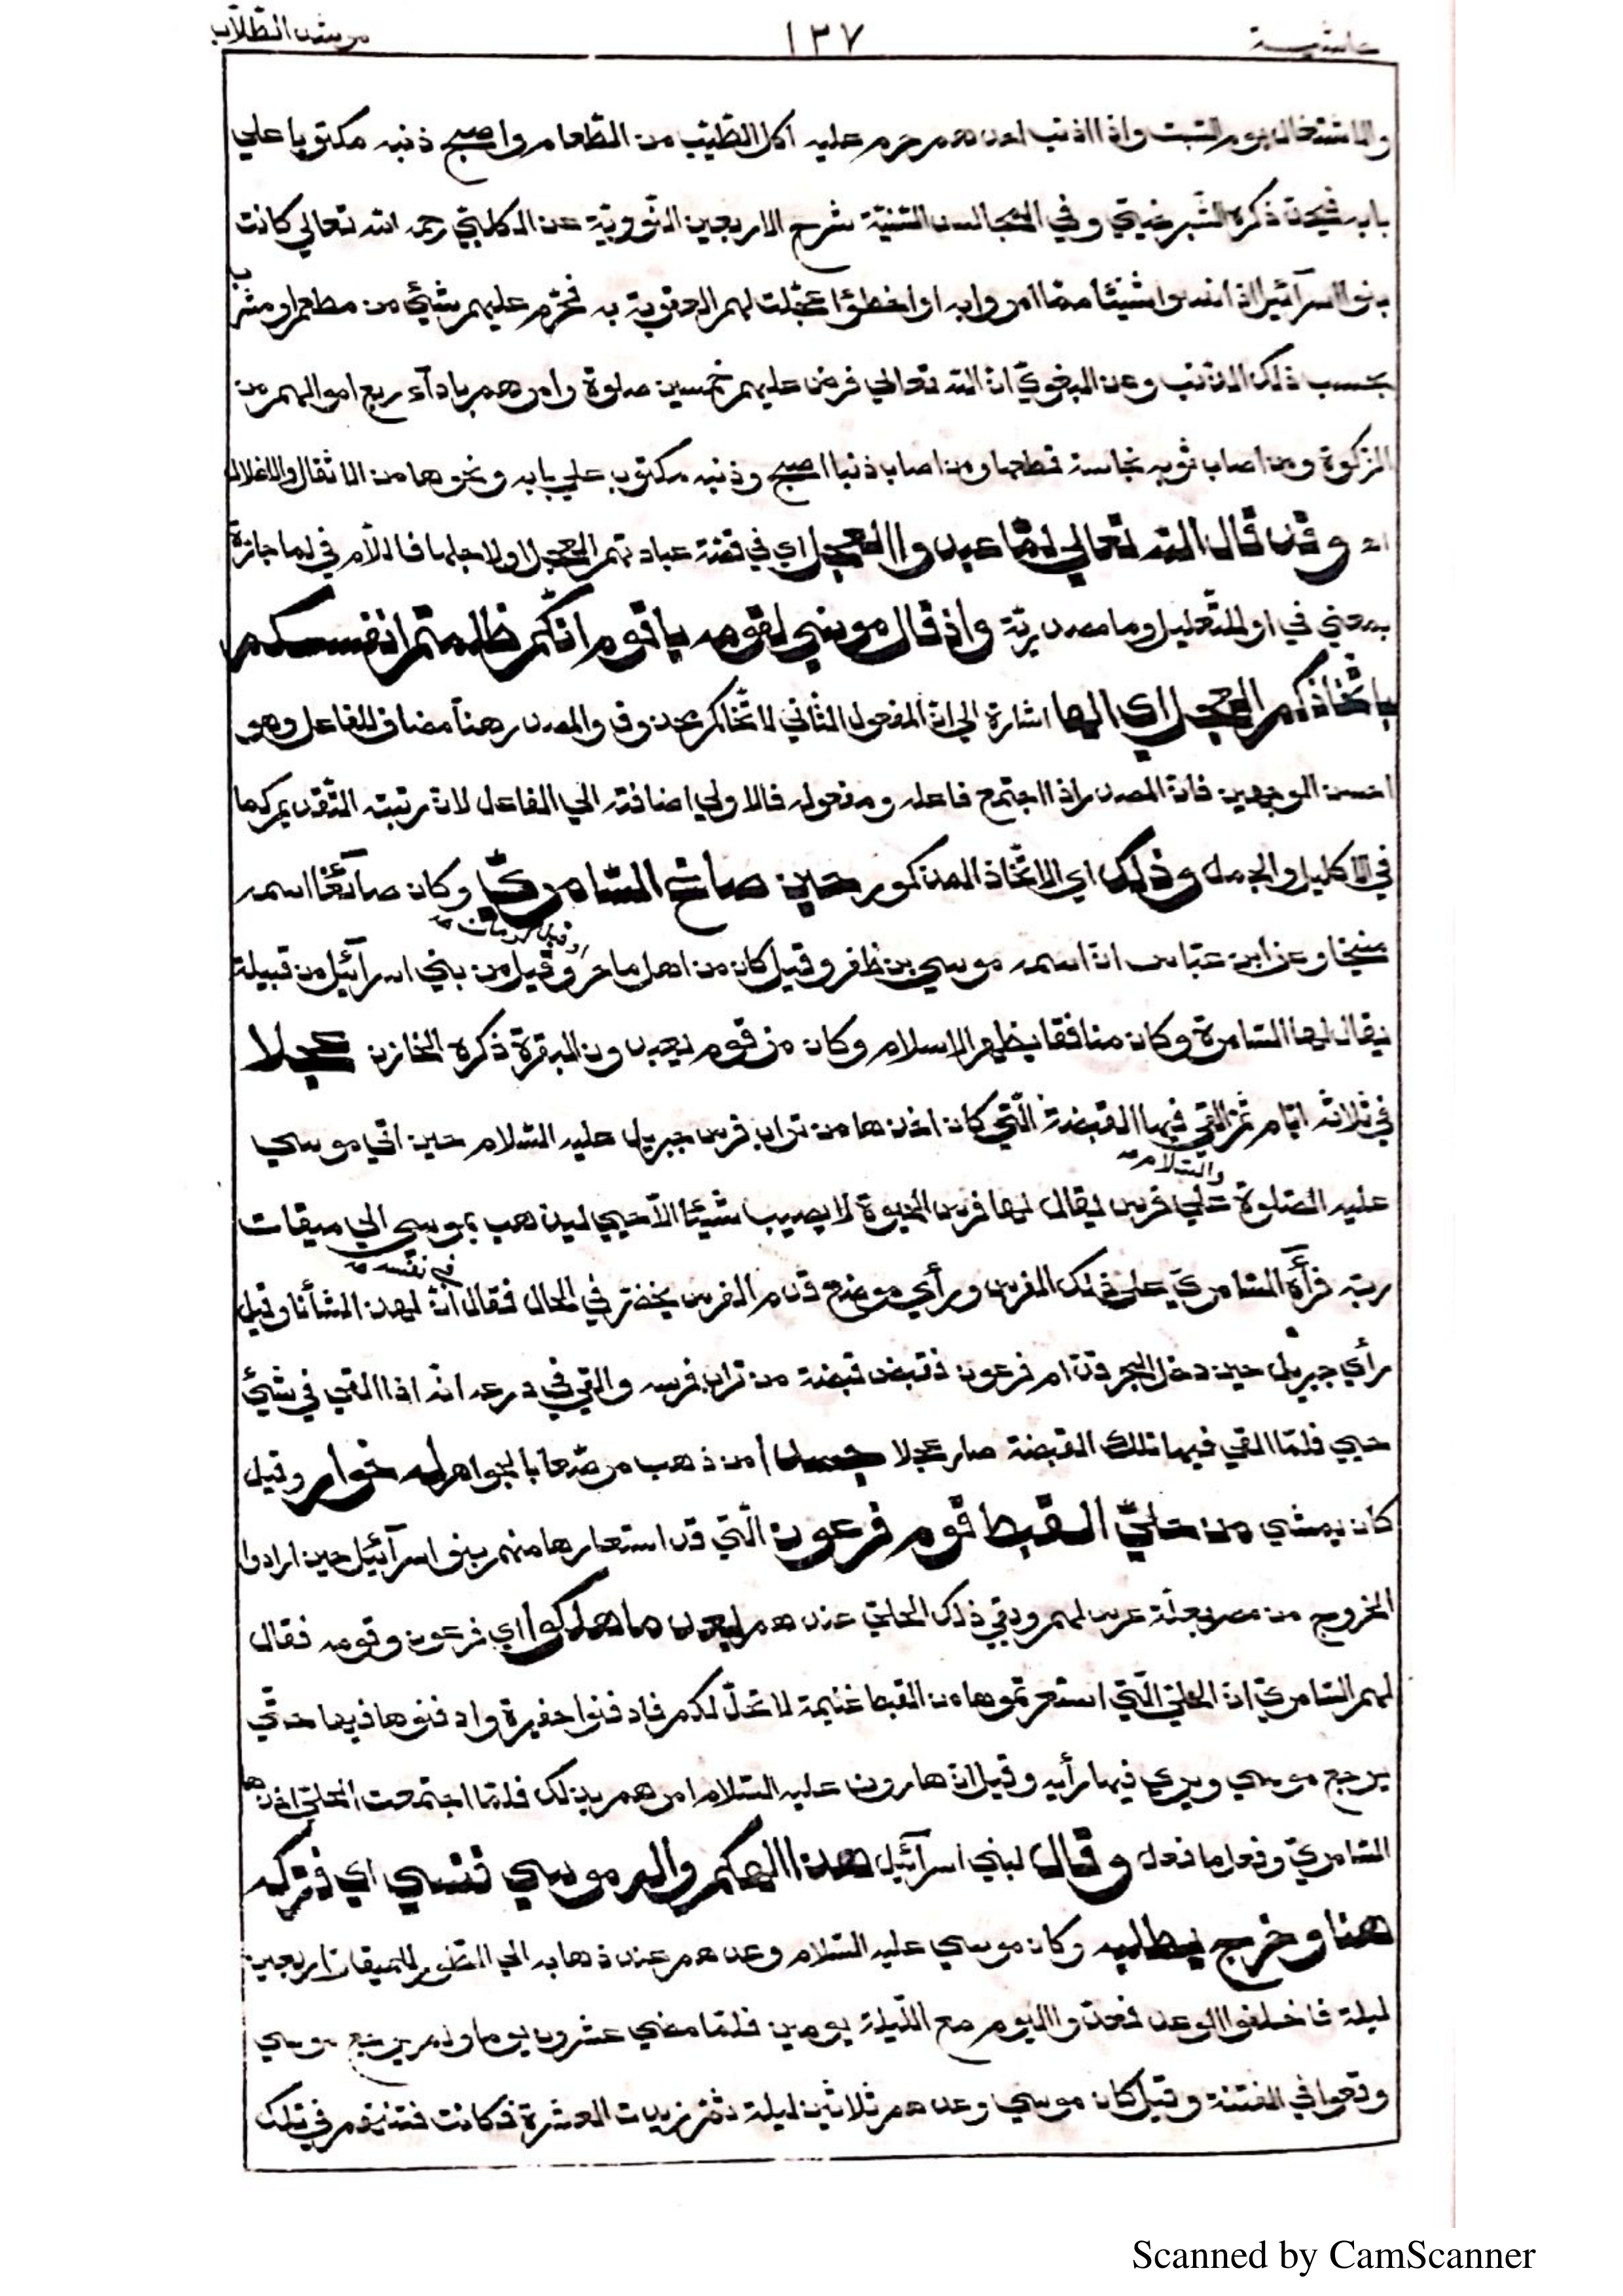 حاشية ١٣٧ مرشد الطلاب
والاشتغال يوم السبت واذا اذنب احدهم حرم عليه اكل الطيّب من الطّعام واصبح ذنبه مكتوبا علي
بابه فيحن ذكره الشّبرخيتي وفي المجالس السّنيّة شرح الاربعين النّووية عن الكلبيّ رحمه الله تعالي كانت
بنو اسرآئيل اذا نسوا شيئا ممّا امروا به او اخطؤا عجّلت لهم العقوبة به فحرّم عليهم شيئ من مطعم او مشرب
بحسب ذلك الذنب وعن البغويّ انّ الله تعالي فرض عليهم خمسين صلوة وامرهم بادآء ربع اموالهم من
الزكوة ومن اصاب ثوبه نجاسة قطعها ومن اصاب ذنبا اصبح وذنبه مكتوب علي بابه ونحوها من الاثقال والاغلال
اه وقد قال الله تعالي لمّا عبدوا العجل اي في قصّة عبادتهم العجل او لاجلها فاللّام في لما جازة
بمعني في او للتّعليل وما مصدريّة واذ قال موسي لقومه يا قوم انّكم ظلمتم انفسكم
باتّخاذكم العجل اي الها اشارة الي انّ المفعول الثاني لاتّخاذكم محذوف والمصدر هنا مضاف للفاعل وهو
احسن الوجهين فانّ المصدر اذا اجتمع فاعله ومفعوله فالاولي اضافته الي الفاعل لانّ رتبته التّقديم كما
في الاكليل والجمل وذلك اي الاتّخاذ المذكور حين صاغ السّامريّ وكان صآئغا اسمه
منيخا وعن ابن عبّاس انّ اسمه موسي بن ظفر وقيل كان من اهل ماجر وقيل كرمان وقيل من بني اسرآئيل من قبيلة
يقال لها السّامرة وكان منافقا يظهر الاسلام وكان من قوم يعبدون البقرة ذكره الخازن عجلا
في ثلاثة ايّام ثمّ القي فيها القبضة الّتي كان اخذها من تراب فرس جبريل عليه السّلام حين اتي موسي
عليه الصّلوة والسّلام علي فرس يقال لها فرس الحيوة لا يصيب شيئا الّا حيي ليذهب بموسي الي ميقات
ربّه فرآه السّامريّ علي ذلك الفرس ورأي موضع قدم الفرس يخضرّ في الحال فقال في نفسه انّ لهذا لشأنا وقيل
رأي جبريل حين دخل البحر قدّام فرعون فقبض قبضة من تراب فرسه والقي في درعه انّه اذا القي في شيئ
حيي فلمّا القي فيها تلك القبضة صار عجلا جسدا من ذهب مرصّعا بالجواهر له خوار وقيل
كان يمشي من حليّ القبط قوم فرعون الّتي قد استعارها منهم بنو اسرآئيل حين ارادوا
الخروج من مصر بعلّة عرس لهم وبقي ذلك الحليّ عندهم بعد ما هلكوا اي فرعون وقومه فقال
لهم السّامريّ انّ الحليّ الّتي استعرتموها من القبط غنيمة لا تحلّ لكم فادفنوا حفيرة وادفنوها فيها حتّي
يرجع موسي ويري فيها رأيه وقيل انّ هارون عليه السّلام امرهم بذلك فلمّا اجتمعت الحليّ اخذها
السّامريّ وفعل ما فعل وقال لبني اسرآئيل هذا الهكم واله موسي فنسي اي فتركه
هنا وخرج يطلبه وكان موسي عليه السّلام وعدهم عند ذهابه الي الطّور للميقات اربعين
ليلة فاخلفوا الوعد فعدّوا اليوم مع اللّيلة يومين فلمّا مضي عشرون يوما ولم يرجع موسي
وقعوا في الفتنة وقيل كان موسي وعدهم ثلاثين ليلة ثمّ زيدت العشرة فكانت فتنتهم في تلك
Scanned by CamScanner